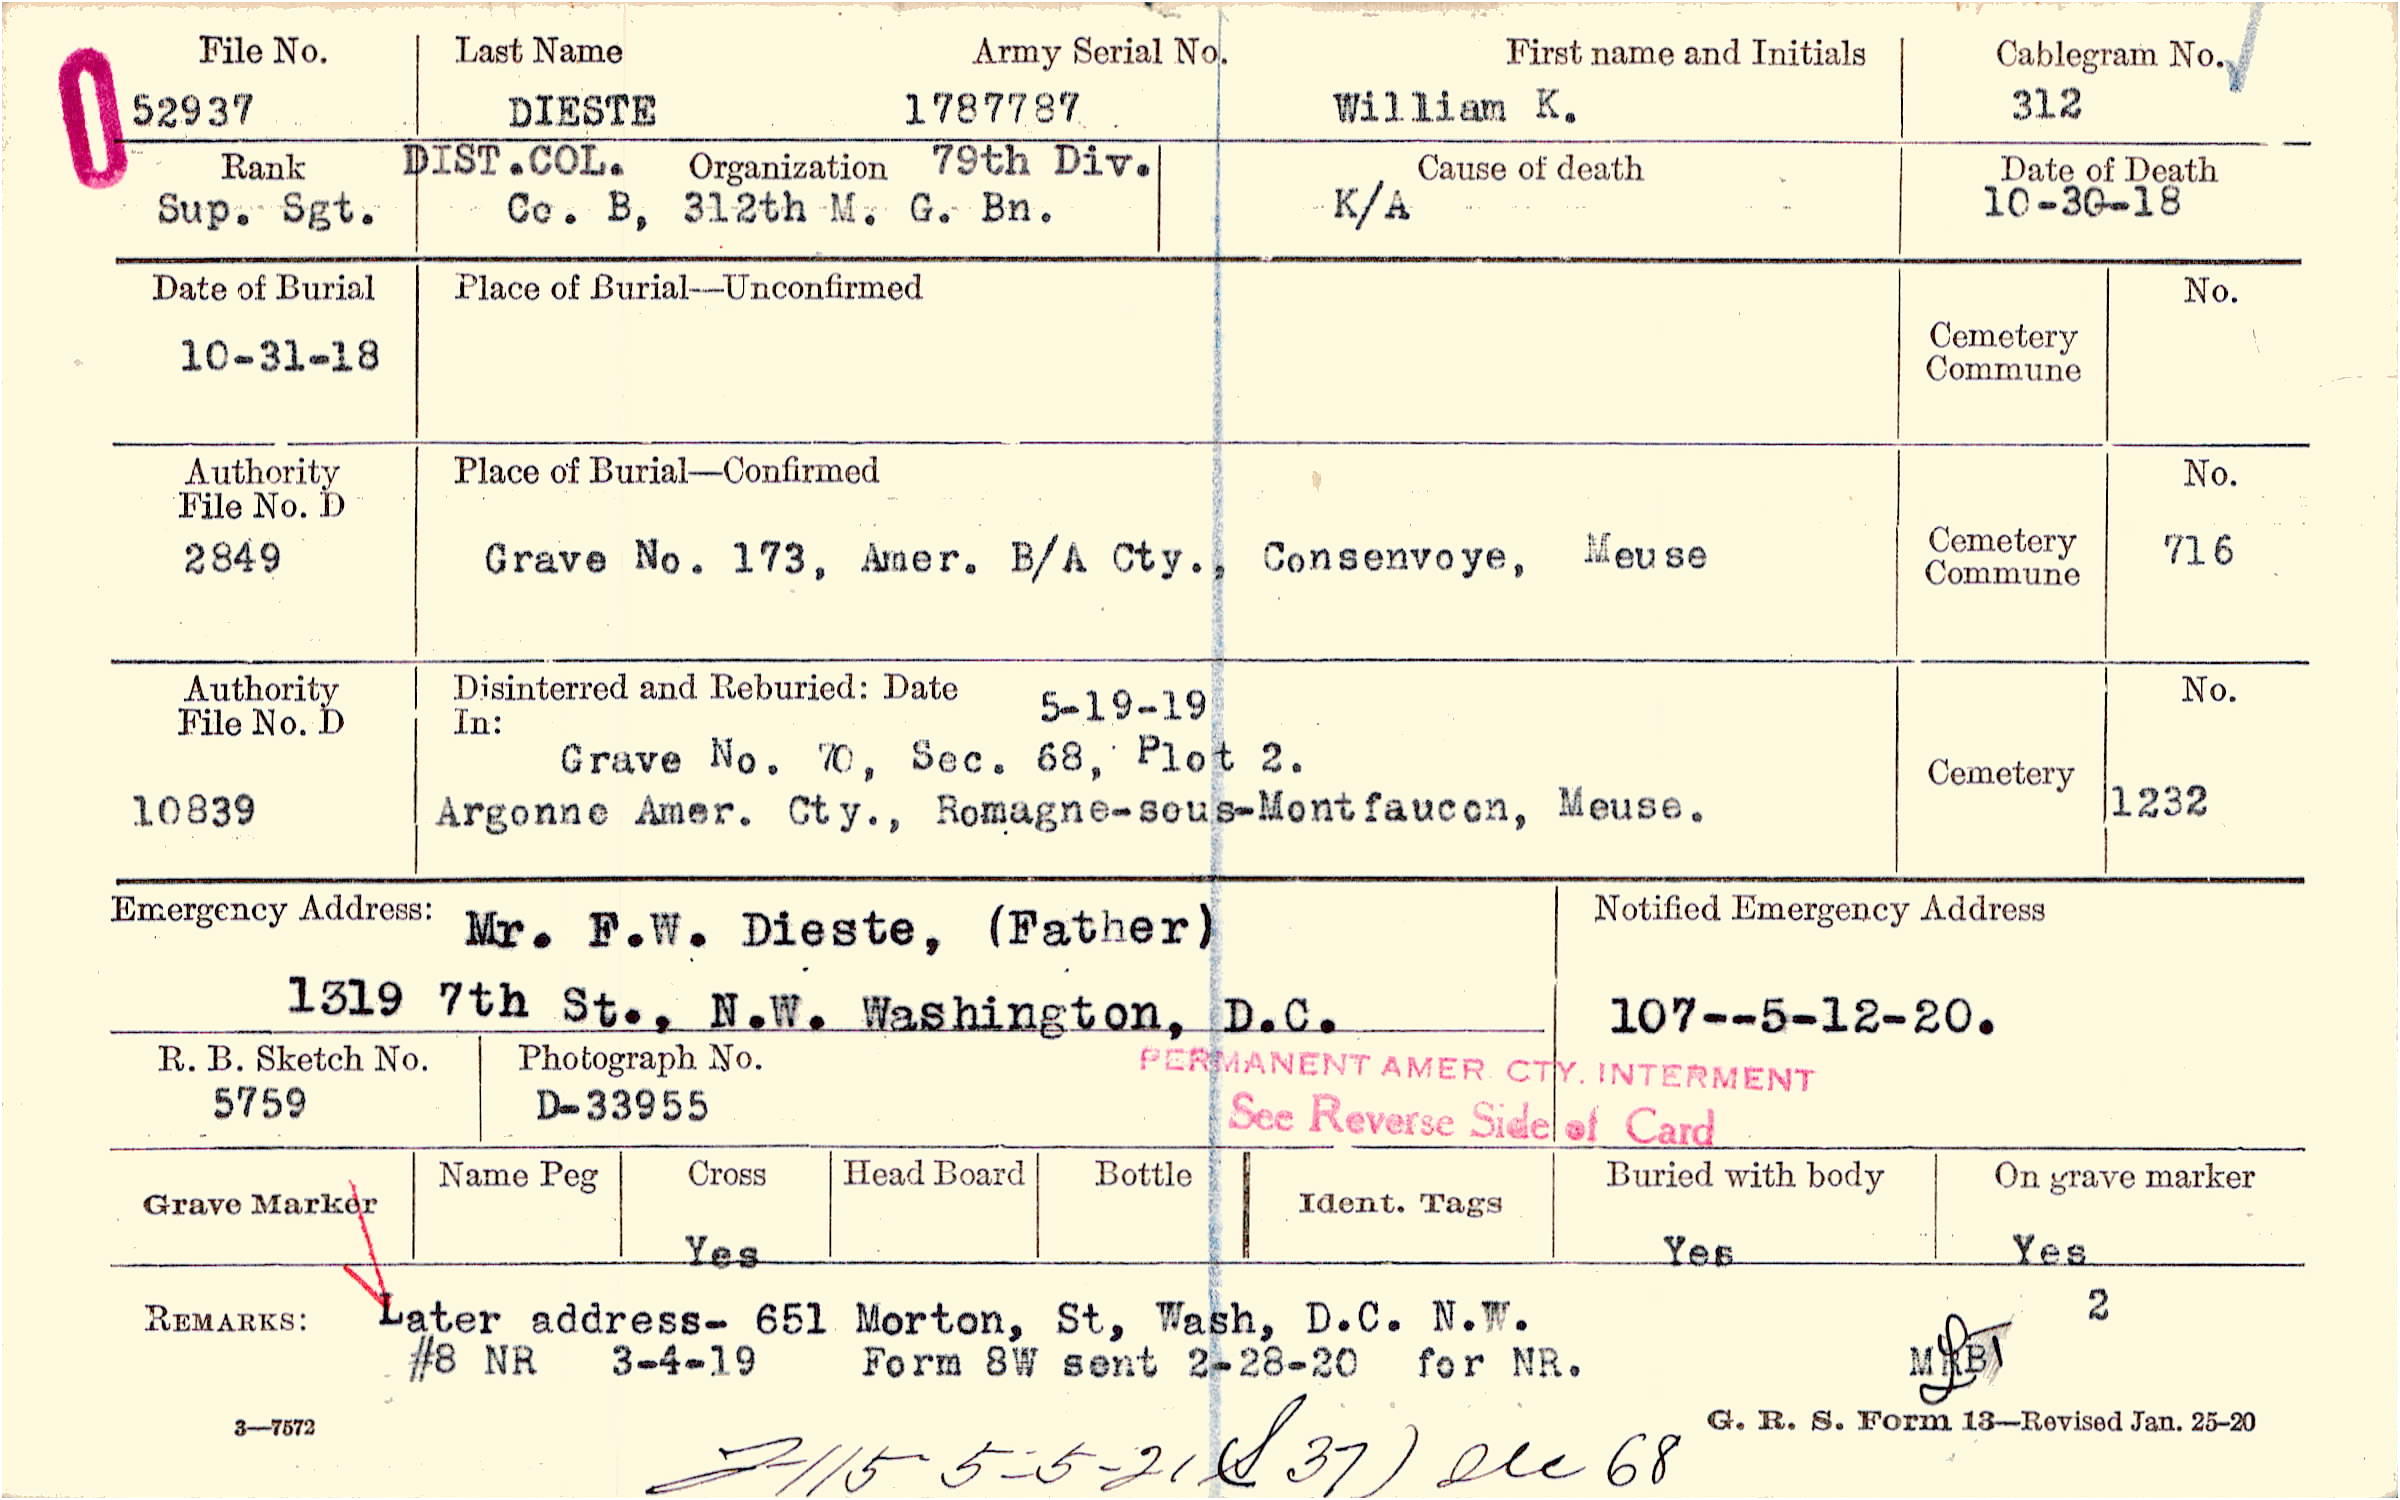 File No. Last Name Army Serial No. First name and Initials Cablegram No.
52937 DIESTE 1787787 William K. 312
Rank DIST.COL. Organization 79th Div. Cause of death Date of Death
Sup. Sgt. Co. B, 312th M. G. Bn. K/A 10-30-18
Date of Burial Place of Burial—Unconfirmed No.
10-31-18 Cemetery
Commune
Authority Place of Burial—Confirmed No.
File No. D
2849 Grave No. 173, Amer. B/A Cty., Consenvoye, Meuse Cemetery 716
Commune
Authority Disinterred and Reburied: Date 5-19-19 No.
File No. D In:
Grave No. 70, Sec. 68, Plot 2. Cemetery
10839 Argonne Amer. Cty., Romagne-sous-Montfaucon, Meuse. 1232
Emergency Address: Mr. F.W. Dieste, (Father) Notified Emergency Address
1319 7th St., N.W. Washington, D.C. 107--5-12-20.
R. B. Sketch No. Photograph No. PERMANENT AMER. CTY. INTERMENT
5759 D-33955 See Reverse Side of Card
Grave Marker Name Peg Cross Head Board Bottle Ident. Tags Buried with body On grave marker
Yes Yes Yes
REMARKS: Later address- 651 Morton, St, Wash, D.C. N.W. 2
#8 NR 3-4-19 Form 8W sent 2-28-20 for NR. MRB
3—7572 G. R. S. Form 13—Revised Jan. 25-20
5-5-21 37) 68